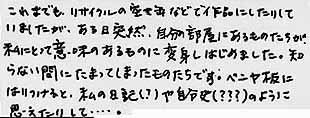 これまでも、リサイクルの空き缶などで作品にしたりして
いましたが、ある日突然、自分の部屋にあるものたちが
私にとって意味のあるものに変身しはじめました。知
らない間にたまってしまったものたちです。ベニヤ板に
はりつけると、私の日記(?)や自分史(???)のように
思えたりして・・・・。